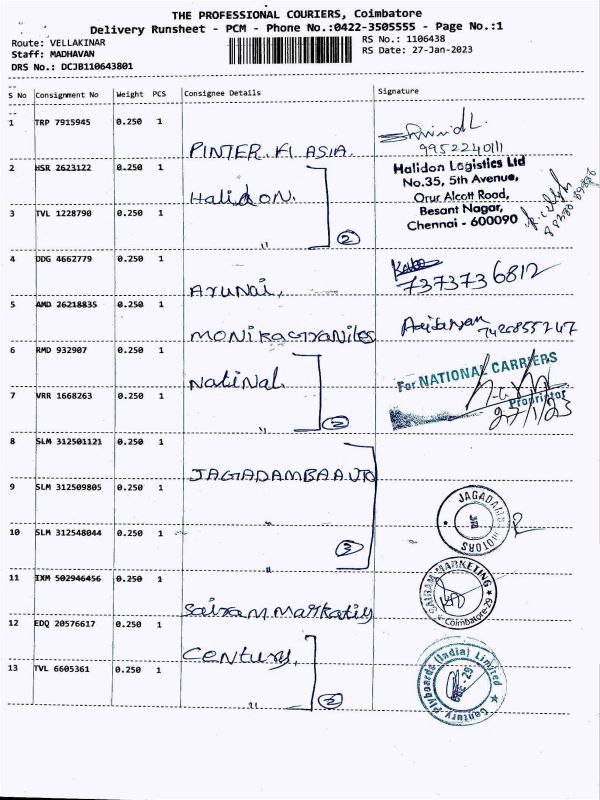 THE PROFESSIONAL COURIERS, Coimbatore
Delivery Runsheet - PCM - Phone No.:0422-3505555 - Page No.:1
Route: VELLAKINAR
RS No.: 1106438
Staff: MADHAVAN
RS Date: 27-Jan-2023
DRS No.: DCJB110643801
S No Consignment No Weight PCS Consignee Details Signature
1 TRP 7915945 0.250 1
PINTER. KI ASIA.
9952240111
2 HSR 2623122 0.250 1
Halidon.
Halidon Logistics Ltd
No.35, 5th Avenue,
Orur Alcott Road,
Besant Nagar,
Chennai - 600090
3 TVL 1228790 0.250 1
" 2
4 DDG 4662779 0.250 1
Arunai.
7373736812
5 AMD 26218835 0.250 1
MONIKAGRANITES
6 RMD 932907 0.250 1
Natinal.
For NATIONAL CARRIERS
Proprietor
27/1/23
7 VRR 1668263 0.250 1
" 2
8 SLM 312501121 0.250 1
JAGADAMBA AUTO
9 SLM 312509805 0.250 1
"
JAGADAMBA
MOTORS
10 SLM 312548044 0.250 1
" 3
11 IXM 502946456 0.250 1
Sairam Markating
SAIRAM MARKETING
Coimbatore-29
12 EDQ 20576617 0.250 1
Century.
13 TVL 6605361 0.250 1
" 2
Century Plyboards (India) Limited
CBE - 29